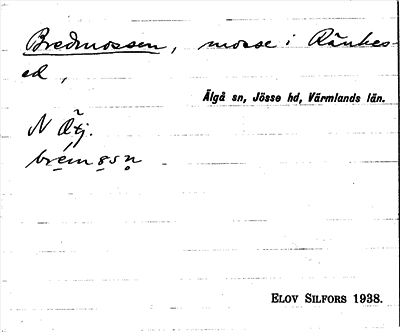 Bredmossen, mosse i Ränkes-
ed,
Älgå sn, Jösse hd, Värmlands län.
N Ätj.
ELOV SILFORS 1938.